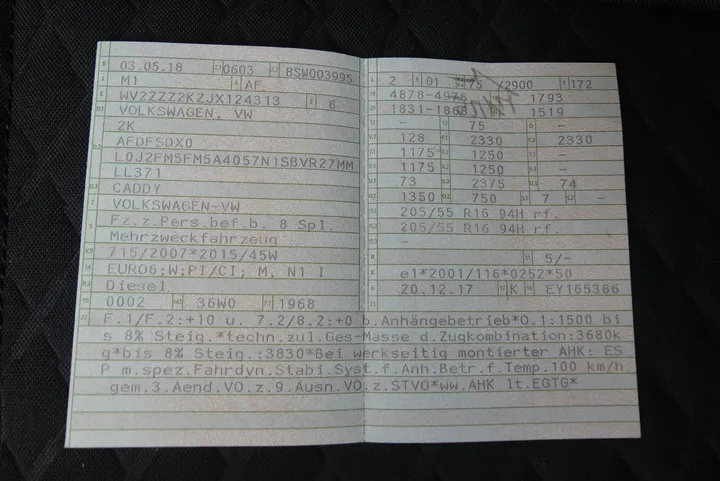 03.05.18 0603 8SW003995
M1 AF
WV2ZZZ2KZJX124313 6
VOLKSWAGEN, VW
2K
AFDFSDX0
L0J2FM5FM5A4057N1SBVR27MM
LL371
CADDY
VOLKSWAGEN-VW
Fz.z.Pers.bef.b. 8 Spl.
Mehrzweckfahrzeug
715/2007*2015/45W
EURO6;W;PI/CI; M, N1 I
Diesel
0002 36W0 1968
2 01 75 /2900 172
4878-4975 1793
1831-1868 1519
- 75 -
128 2330 2330
1175- 1250 -
1175- 1250 -
73 2375 74
1350 750 7 -
205/55 R16 94H rf.
205/55 R16 94H rf.
-
5/-
e1*2001/116*0252*50
20.12.17 K EY165386
F.1/F.2:+10 u. 7.2/8.2:+0 b.Anhängebetrieb*O.1:1500 bi
s 8% Steig.*techn.zul.Ges-Masse d.Zugkombination:3680k
g*bis 8% Steig.:3830*Bei werkseitig montierter AHK: ES
P m.spez.Fahrdyn.Stabi.Syst.f.Anh.Betr.f.Temp.100 km/h
gem.3.Aend.VO.z.9.Ausn.VO.z.STVO*ww.AHK lt.EGTG*